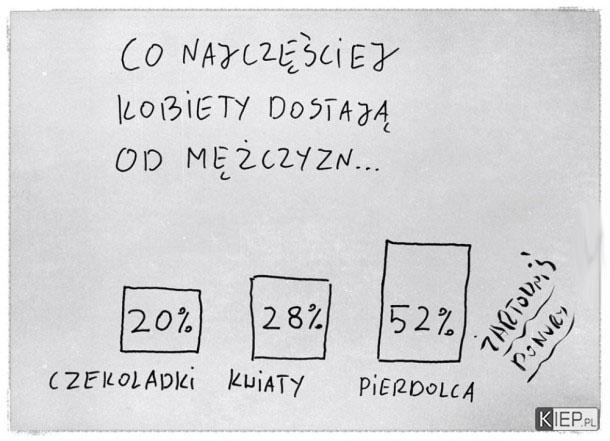 CO NAJCZĘŚCIEJ
KOBIETY DOSTAJĄ
OD MĘŻCZYZN...
20%
28%
52%
CZEKOLADKI
KWIATY
PIERDOLCA
PONURY
KIEP.PL